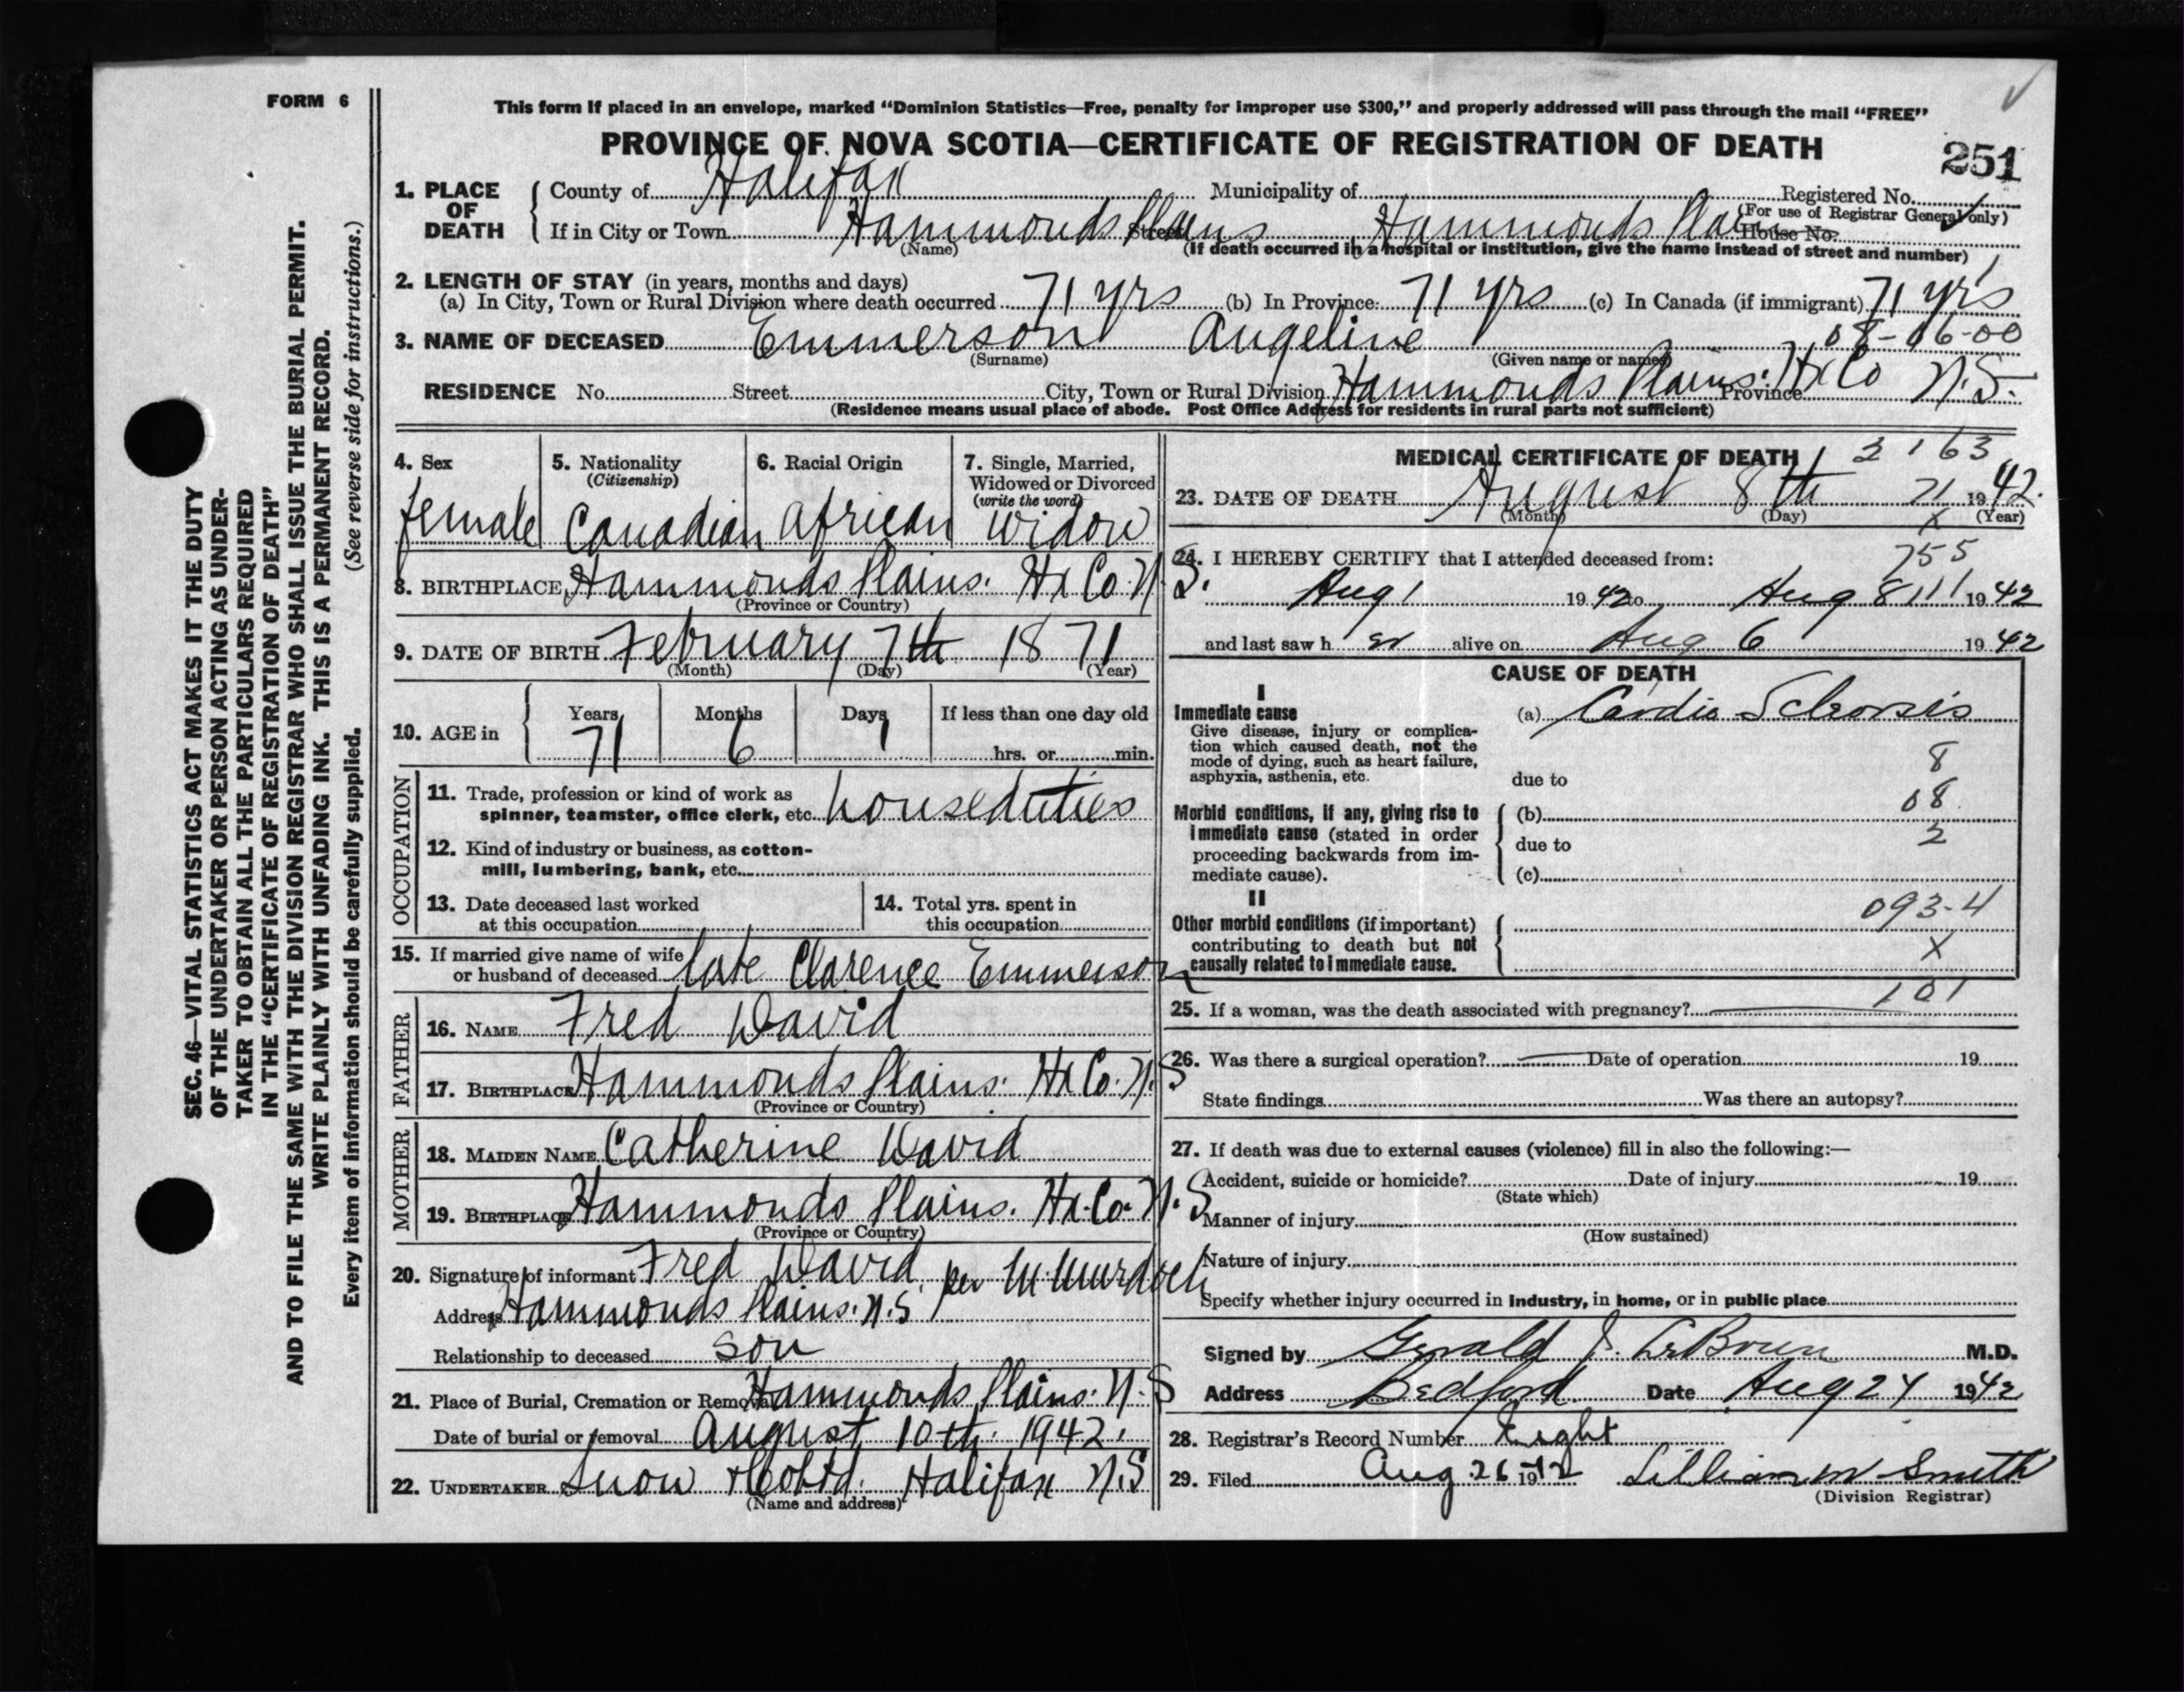 FORM 6
This form if placed in an envelope, marked “Dominion Statistics—Free, penalty for improper use $300,” and properly addressed will pass through the mail “FREE”
PROVINCE OF NOVA SCOTIA—CERTIFICATE OF REGISTRATION OF DEATH
251
1. PLACE OF DEATH
County of Halifax Municipality of Registered No.
(For use of Registrar General only)
If in City or Town Hammonds Plains Street Hammonds Plains House No.
(Name) (If death occurred in a hospital or institution, give the name instead of street and number)
2. LENGTH OF STAY (in years, months and days)
(a) In City, Town or Rural Division where death occurred 71 yrs (b) In Province 71 yrs (c) In Canada (if immigrant) 71 yrs
3. NAME OF DECEASED Emmerson Angeline 08-06-00
(Surname) (Given name or names)
RESIDENCE No. Street City, Town or Rural Division Hammonds Plains. Hx Co Province N.S.
(Residence means usual place of abode. Post Office Address for residents in rural parts not sufficient)
4. Sex female
5. Nationality (Citizenship) Canadian
6. Racial Origin African
7. Single, Married, Widowed or Divorced (write the word) widow
8. BIRTHPLACE Hammonds Plains. Hx Co. N.S.
(Province or Country)
9. DATE OF BIRTH February 7th 1871
(Month) (Day) (Year)
10. AGE in Years 71 Months 6 Days 1 If less than one day old hrs. or min.
OCCUPATION
11. Trade, profession or kind of work as spinner, teamster, office clerk, etc. houseduties
12. Kind of industry or business, as cotton-mill, lumbering, bank, etc.
13. Date deceased last worked at this occupation
14. Total yrs. spent in this occupation
15. If married give name of wife or husband of deceased late Clarence Emmerson
FATHER
16. NAME Fred David
17. BIRTHPLACE Hammonds Plains. Hx Co. N.S
(Province or Country)
MOTHER
18. MAIDEN NAME Catherine David
19. BIRTHPLACE Hammonds Plains. Hx. Co. N.S
(Province or Country)
20. Signature of informant Fred David per M Murdoch
Address Hammonds Plains. N.S.
Relationship to deceased son
21. Place of Burial, Cremation or Removal Hammonds Plains. N.S
Date of burial or removal August 10th. 1942.
22. UNDERTAKER Snow & Co Ltd. Halifax N.S
(Name and address)
MEDICAL CERTIFICATE OF DEATH 2163
23. DATE OF DEATH August 8th 71 1942.
(Month) (Day) x (Year)
24. I HEREBY CERTIFY that I attended deceased from: 755
Aug 1 1942 to Aug 8 111 1942
and last saw her alive on Aug 6 1942
CAUSE OF DEATH
I
Immediate cause (a) Cardio Sclerosis
Give disease, injury or complication which caused death, not the mode of dying, such as heart failure, asphyxia, asthenia, etc.
8
due to
08
Morbid conditions, if any, giving rise to immediate cause (stated in order proceeding backwards from immediate cause).
(b)
2
due to
(c)
II
093-4
Other morbid conditions (if important) contributing to death but not causally related to immediate cause.
X
101
25. If a woman, was the death associated with pregnancy?
26. Was there a surgical operation? Date of operation 19
State findings Was there an autopsy?
27. If death was due to external causes (violence) fill in also the following:—
Accident, suicide or homicide? Date of injury 19
(State which)
Manner of injury
(How sustained)
Nature of injury
Specify whether injury occurred in industry, in home, or in public place
Signed by Gerald J. LeBrun M.D.
Address Bedford. Date Aug 24 1942
28. Registrar's Record Number Eight
29. Filed Aug. 26 1942 Lillian W Smith
(Division Registrar)
SEC. 46—VITAL STATISTICS ACT MAKES IT THE DUTY
OF THE UNDERTAKER OR PERSON ACTING AS UNDER-
TAKER TO OBTAIN ALL THE PARTICULARS REQUIRED
IN THE “CERTIFICATE OF REGISTRATION OF DEATH”
AND TO FILE THE SAME WITH THE DIVISION REGISTRAR WHO SHALL ISSUE THE BURIAL PERMIT.
WRITE PLAINLY WITH UNFADING INK. THIS IS A PERMANENT RECORD.
Every item of information should be carefully supplied. (See reverse side for instructions.)